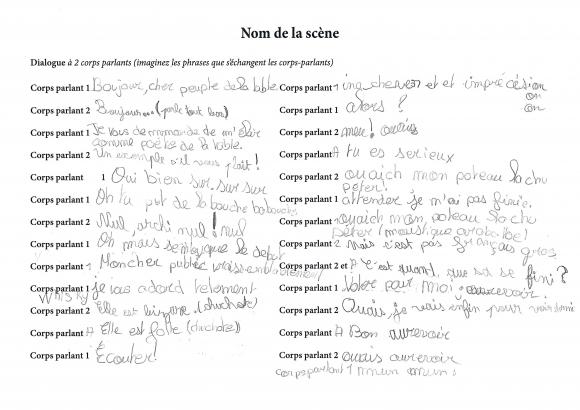 Nom de la scène
Dialogue à 2 corps parlants (imaginez les phrases que s'échangent les corps-parlants)
Corps parlant 1 Boujour, cher peuple de la table
Corps parlant 2 Boujour... (parle tout bas)
Corps parlant 1 Je vous demande de m'élir
comme poète de la table.
Corps parlant 2 Un exemple s'il vous plaît!
Corps parlant 1 Oui bien sur sur sur
Corps parlant 1 Oh tu de la bouche
Corps parlant 2 Nul, archi nul! nul
Corps parlant 1 Oh mais que le debut
Corps parlant 1 Moncher public
Corps parlant 1 je vous adord telement
Corps parlant 2 Elle est bizzare. (chuchote)
Corps parlant Elle est folle (chuchote)
Corps parlant 1 Écouter!
Corps parlant 1 et et
on
on
Corps parlant 1 alors?
Corps parlant 2 meu! ouais
Corps parlant tu es serieux
Corps parlant 2 ouaich mon poteau sa chu
péter!
Corps parlant 1 attender je m'ai pas finie.
Corps parlant ouaich mon poteau sa chu
péter (moustique)
Corps parlant 2 Mais c'est pas français gros
Corps parlant 2 et 1 C'est quant, que sa se fini?
Corps parlant 1 Voter pour moi aurevoir.
Corps parlant 2 Ouais, je vais enfin pour voir
Corps parlant Bon aurevoir
Corps parlant 2 ouais aurevoir
corps parlant 1